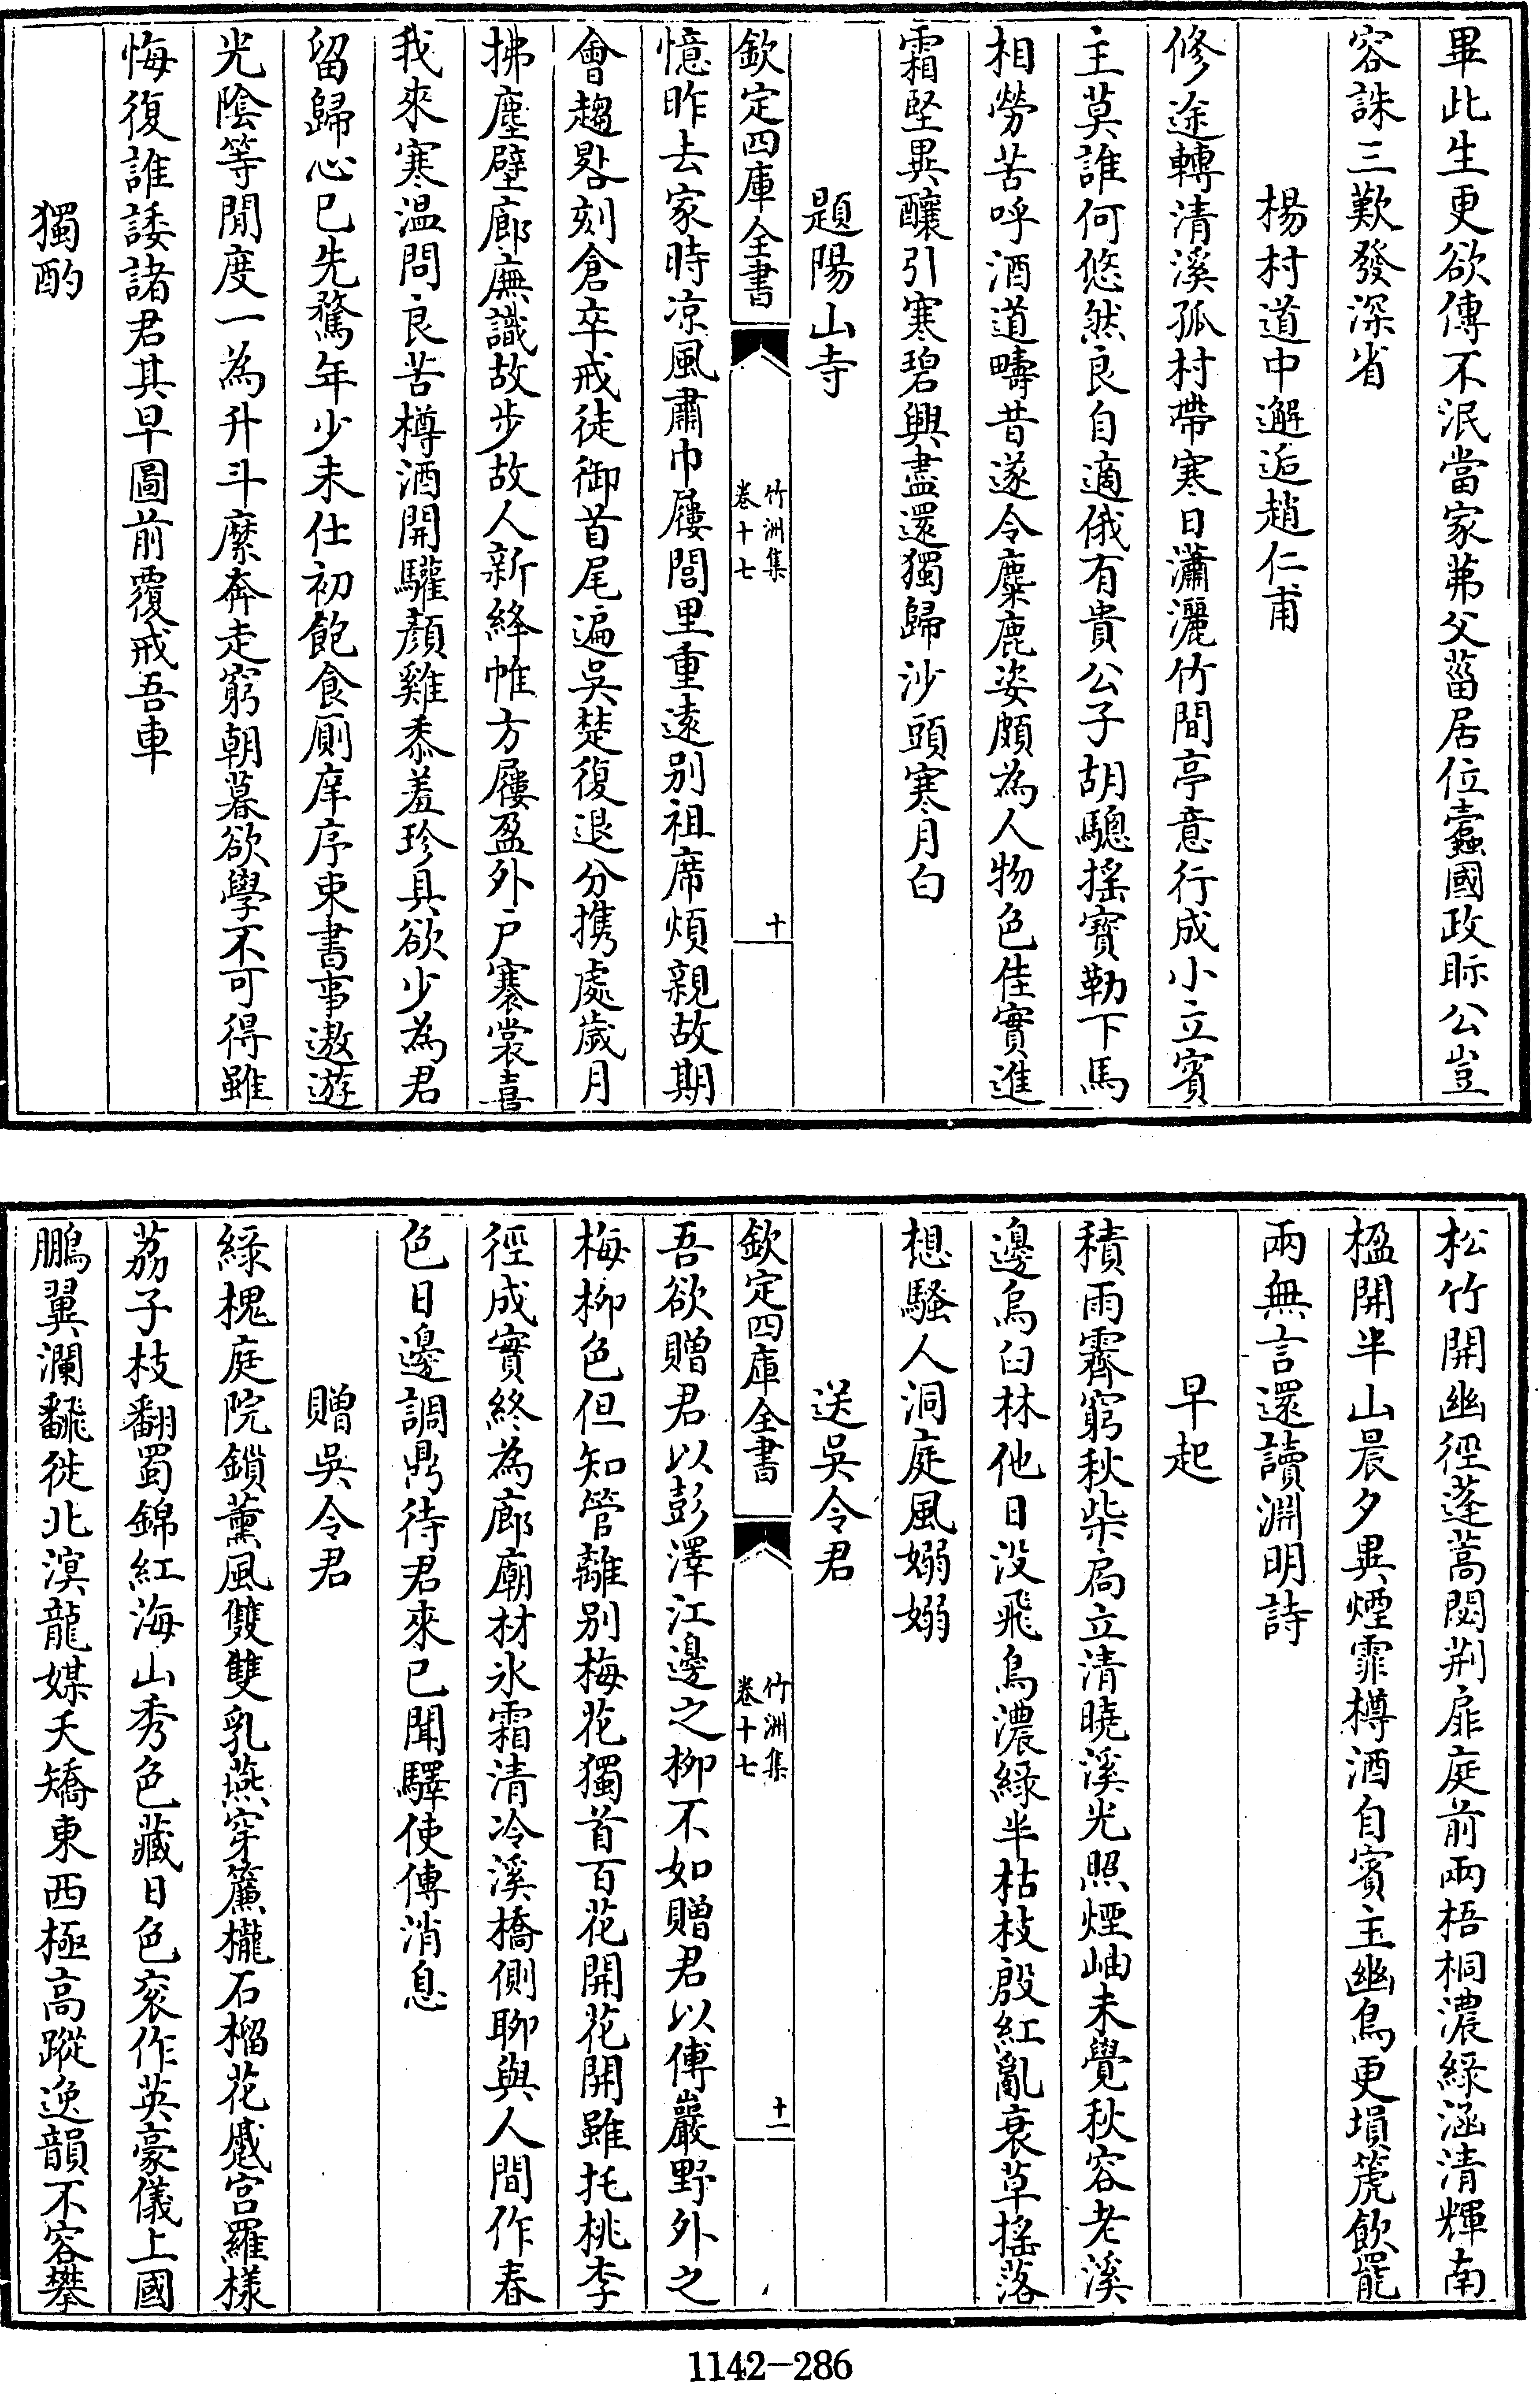 畢此生更欲傳不泯當家弟父菑居位蠹國政眎公豈
容誅三歎發深省
楊村道中邂逅趙仁甫
修途轉清溪孤村帶寒日瀟灑竹間亭意行成小立賓
主莫誰何悠然良自適俄有貴公子胡騘摇寶勒下馬
相勞苦呼酒道疇昔遂令麋鹿姿頗為人物色佳實進
霜堅異釀引寒碧興盡還獨歸沙頭寒月白
題陽山寺
欽定四庫全書
竹洲集
卷十七
十
憶昨去家時凉風肅巾屨閭里重逺别祖席煩親故期
會趨晷刻倉卒戒徒御首尾遍吳楚復退分携處歲月
拂塵壁廊廡識故步故人新絳帷方屨盈外户褰裳喜
我來寒温問良苦樽酒開驩顔雞黍羞珍具欲少為君
留歸心已先騖年少未仕初飽食厠庠序束書事遨遊
光陰等閒度一為升斗縻奔走窮朝暮欲學不可得雖
悔復誰諉諸君其早圖前覆戒吾車
獨酌
松竹開幽徑蓬蒿閟荆扉庭前兩梧桐濃緑涵清輝南
楹開半山晨夕異煙霏樽酒自賓主幽鳥更塤箎飲罷
兩無言還讀淵明詩
早起
積雨霽窮秋柴扃立清曉溪光照煙岫未覺秋容老溪
邊烏臼林他日没飛鳥濃緑半枯枝殷紅亂衰草摇落
想騷人洞庭風嫋嫋
送吳令君
欽定四庫全書
竹洲集
卷十七
十一
吾欲贈君以彭澤江邊之柳不如贈君以傅巖野外之
梅柳色但知管離别梅花獨首百花開花開雖托桃李
徑成實終為廊廟材氷霜清冷溪橋側聊與人間作春
色日邊調鼎待君來已聞驛使傳消息
贈吳令君
緑槐庭院鎖薰風雙雙乳燕穿簾櫳石榴花蹙宫羅様
荔子枝翻蜀錦紅海山秀色藏日色衮作英豪儀上國
鵬翼瀾翻徙北溟龍媒夭矯東西極高蹤逸韻不容攀
1142-286